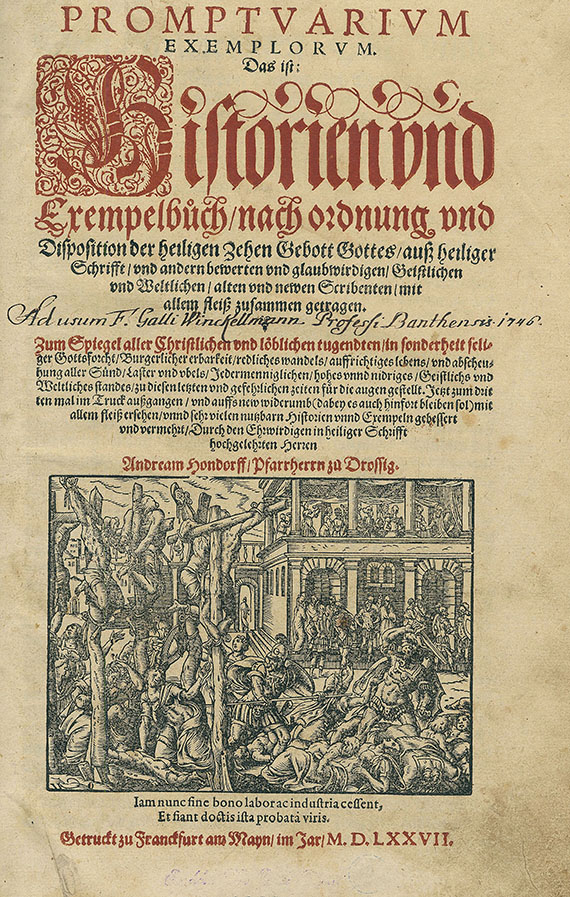 PROMPTVARIVM
EXEMPLORVM.
Das ist:
Historien vnd
Exempelbůch/nach ordnung vnd
Disposition der heiligen Zehen Gebott Gottes/auß heiliger
Schrifft/vnd andern bewerten vnd glaubwirdigen/Geistlichen
vnd Weltlichen/alten vnd newen Scribenten/mit
allem fleiß zusammen getragen.
Ad usum F. Galli Winckellmann Professi Banthensis 1746.
Zum Spiegel aller Christlichen vnd löblichen tugendten/in sonderheit seli-
ger Gottsforcht/Burgerlicher erbarkeit/redliches wandels/auffrichtiges lebens/vnd abscheu-
hung aller Sünd/Laster vnd vbels/Jedermenniglichen/hohes vnnd nidriges/Geistlichs vnd
Weltliches standes/zu diesen letzten vnd gefehrlichen zeiten für die augen gestellt. Jetzt zum drit-
ten mal im Truck außgangen/vnd auffs new widerumb (dabey es auch hinfort bleiben sol) mit
allem fleiß ersehen/vnnd sehr vielen nutzbarn Historien vnnd Exempeln gebessert
vnd vermehrt/Durch den Ehrwirdigen in heiliger Schrifft
hochgelehrten Herren
Andream Hondorff/Pfarrherrn zu Drossig.
Iam nunc sine bono labor ac industria cessent,
Et fiant doctis ista probata viris.
Getruckt zu Franckfurt am Mayn/im Jar/M. D. LXXVII.